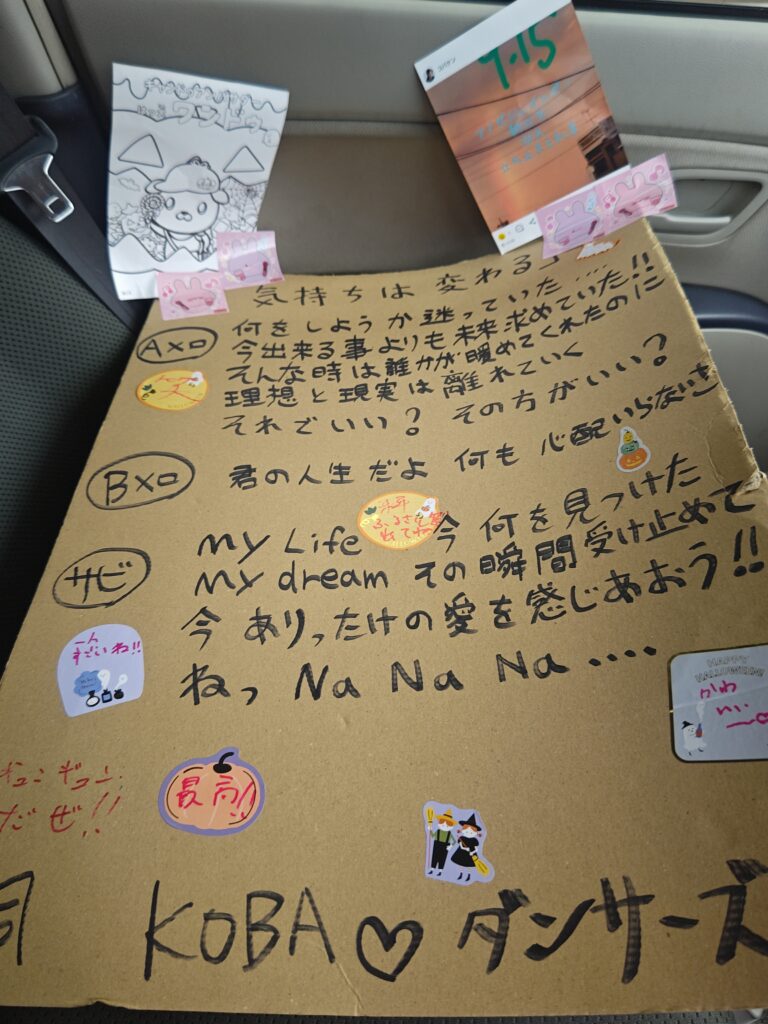 9.15
気持ちは 変わる
Aメロ
何をしようか迷っていた....
今出来る事よりも未来求めていた!!
そんな時は誰かが暖めてくれたのに
理想と現実は離れていく
それでいい? その方がいい?
笑
Bメロ
君の人生だよ 何も 心配いらないさ
サビ
My Life 今 何を見つけた
My dream その瞬間受け止めて
今 ありったけの愛を感じあおう!!
ねっ Na Na Na ....
すごいね!!
HAPPY HALLOWEEN!
かわ
いい
ギュンギュン
だぜ!!
最高!!
KOBA♡ダンサーズ